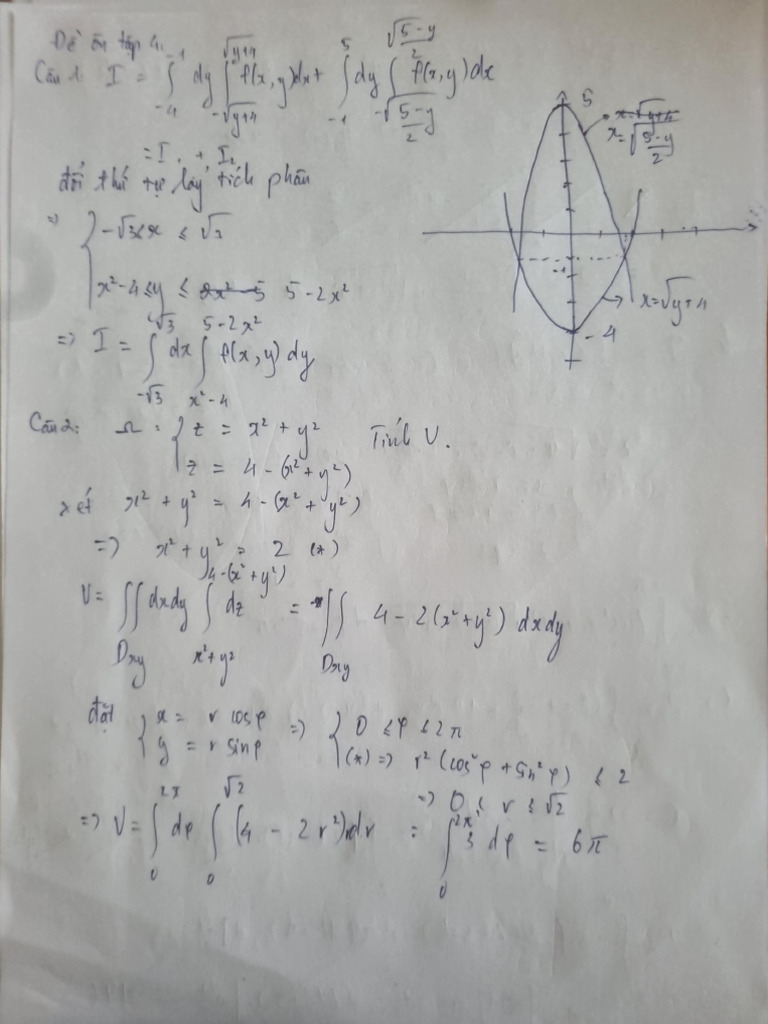 Đề ôn tập 4.
Câu 1: I = ∫_{-4}^{-1} dy ∫_{-√(y+4)}^{√(y+4)} f(x,y)dx + ∫_{-1}^{5} dy ∫_{-√((5-y)/2)}^{√((5-y)/2)} f(x,y)dx
= I₁ + I₂
đổi thứ tự lấy tích phân
=> { -√3 ≤ x ≤ √3
x²-4 ≤ y ≤ 5-2x²
=> I = ∫_{-√3}^{√3} dx ∫_{x²-4}^{5-2x²} f(x,y)dy
5
x=√((5-y)/2)
-1
x=√(y+4)
-4
Câu 2: Ω : { z = x² + y² Tính V.
z = 4-(x²+y²)
xét x² + y² = 4-(x²+y²)
=> x² + y² = 2 (*)
V = ∬_{Dxy} dxdy ∫_{x²+y²}^{4-(x²+y²)} dz = ∬_{Dxy} 4-2(x²+y²) dxdy
đặt { x = r cosφ => { 0 ≤ φ ≤ 2π
y = r sinφ (*) => r²(cos²φ + sin²φ) ≤ 2
=> 0 ≤ r ≤ √2
=> V = ∫_0^{2π} dφ ∫_0^{√2} (4 - 2r²)rdr = ∫_0^{2π} 3 dφ = 6π